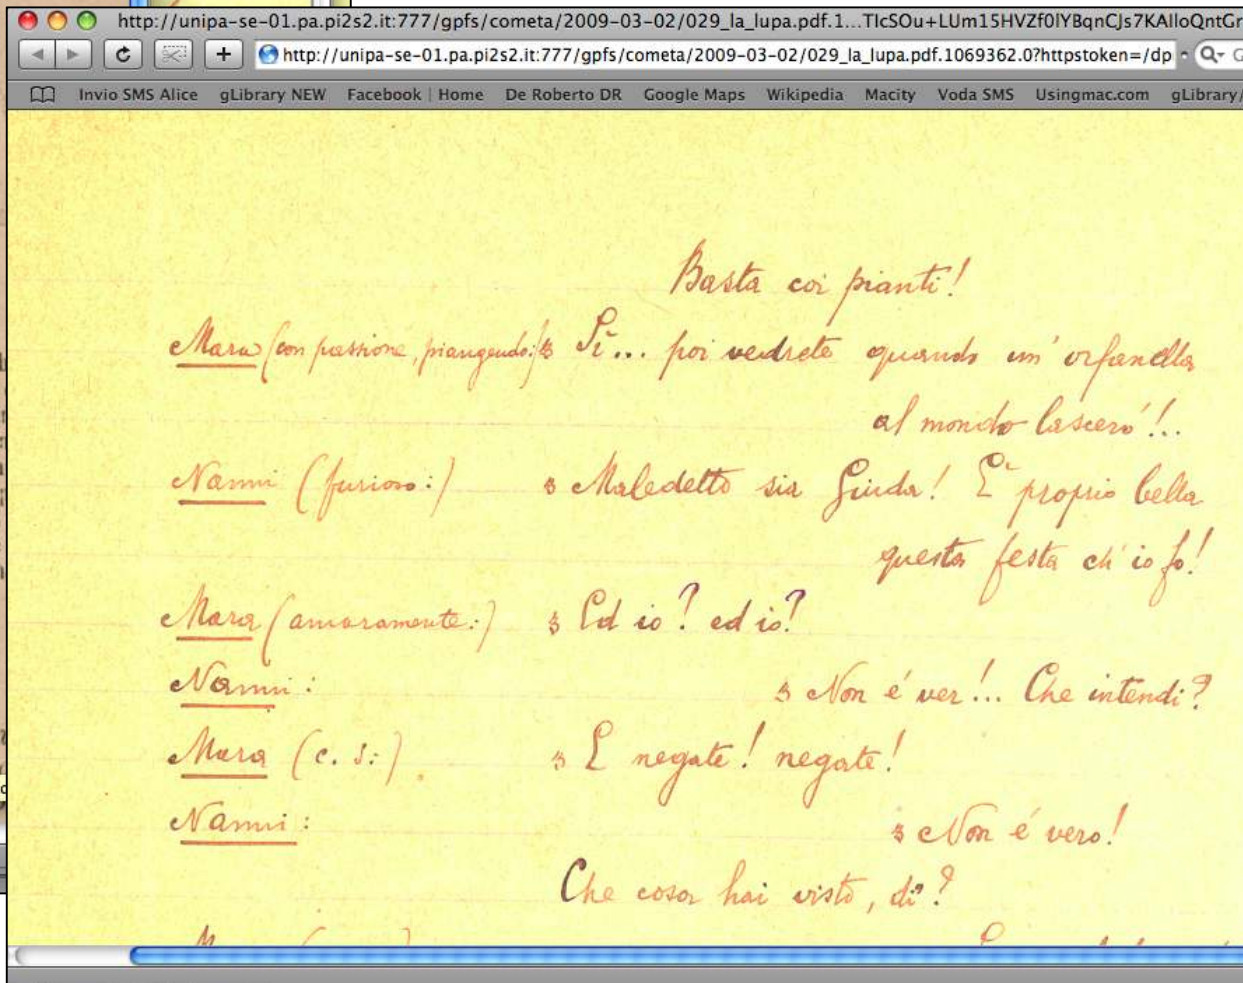 http://unipa-se-01.pa.pi2s2.it:777/gpfs/cometa/2009-03-02/029_la_lupa.pdf.1...TIcSOu+LUm15HVZf0IYBqnCJs7KAlloQntGr
http://unipa-se-01.pa.pi2s2.it:777/gpfs/cometa/2009-03-02/029_la_lupa.pdf.1069362.0?httpstoken=/dp
Invio SMS Alice gLibrary NEW Facebook | Home De Roberto DR Google Maps Wikipedia Macity Voda SMS Usingmac.com gLibrary/
Basta coi pianti!
Mara (con passione, piangendo:) Sì... poi vedrete quando un' orfanella
al mondo lascerò!..
Nanni (furioso:) Maledetto sia Giuda! È proprio bella
questa festa ch' io fo!
Mara (amaramente:) Ed io? ed io?
Nanni: Non é ver!... Che intendi?
Mara (c. s:) E negate! negate!
Nanni: Non é vero!
Che cosa hai visto, di?